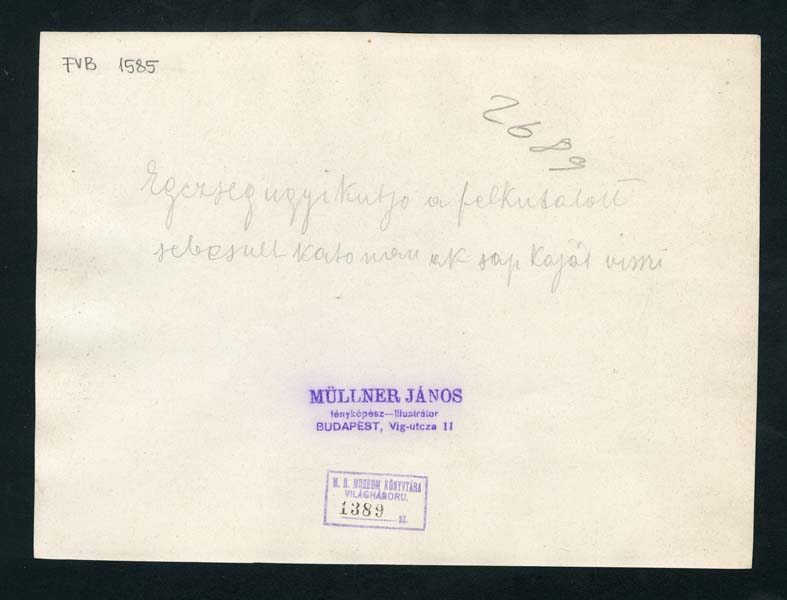 FVB 1585
2689
Egezseg ugyi kutjo a felkutalott
sebesult katonanak sapkaját viszi
MÜLLNER JÁNOS
fényképész—illustrátor
BUDAPEST, Vig-utcza 11
M. N. MUSEUM KÖNYVTÁRA
VILÁGHÁBORU.
1389 sz.